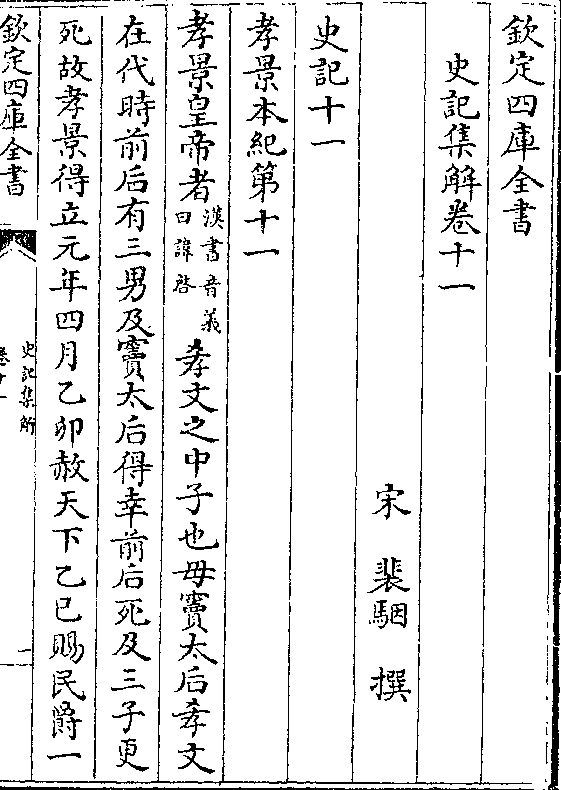 欽定四庫全書
史記集解卷十一
宋　裴駰　撰
史記十一
孝景本紀第十一
孝景皇帝者漢書音義曰諱啓孝文之中子也母竇太后孝文
在代時前后有三男及竇太后得幸前后死及三子更
死故孝景得立元年四月乙卯赦天下乙巳賜民爵一
欽定四庫全書
史記集解
卷十一
一